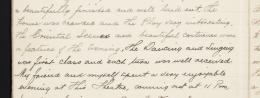 a beautifully finished and well laid out the
house was crowded and the Play very interesting,
the Oriental Scenes and beautiful costumes was
a feature of the evening, the Dancing and Singing
was first class and each item was well received
My friend and myself spent a very enjoyable
evening at this Theatre, coming out at 11 Pm